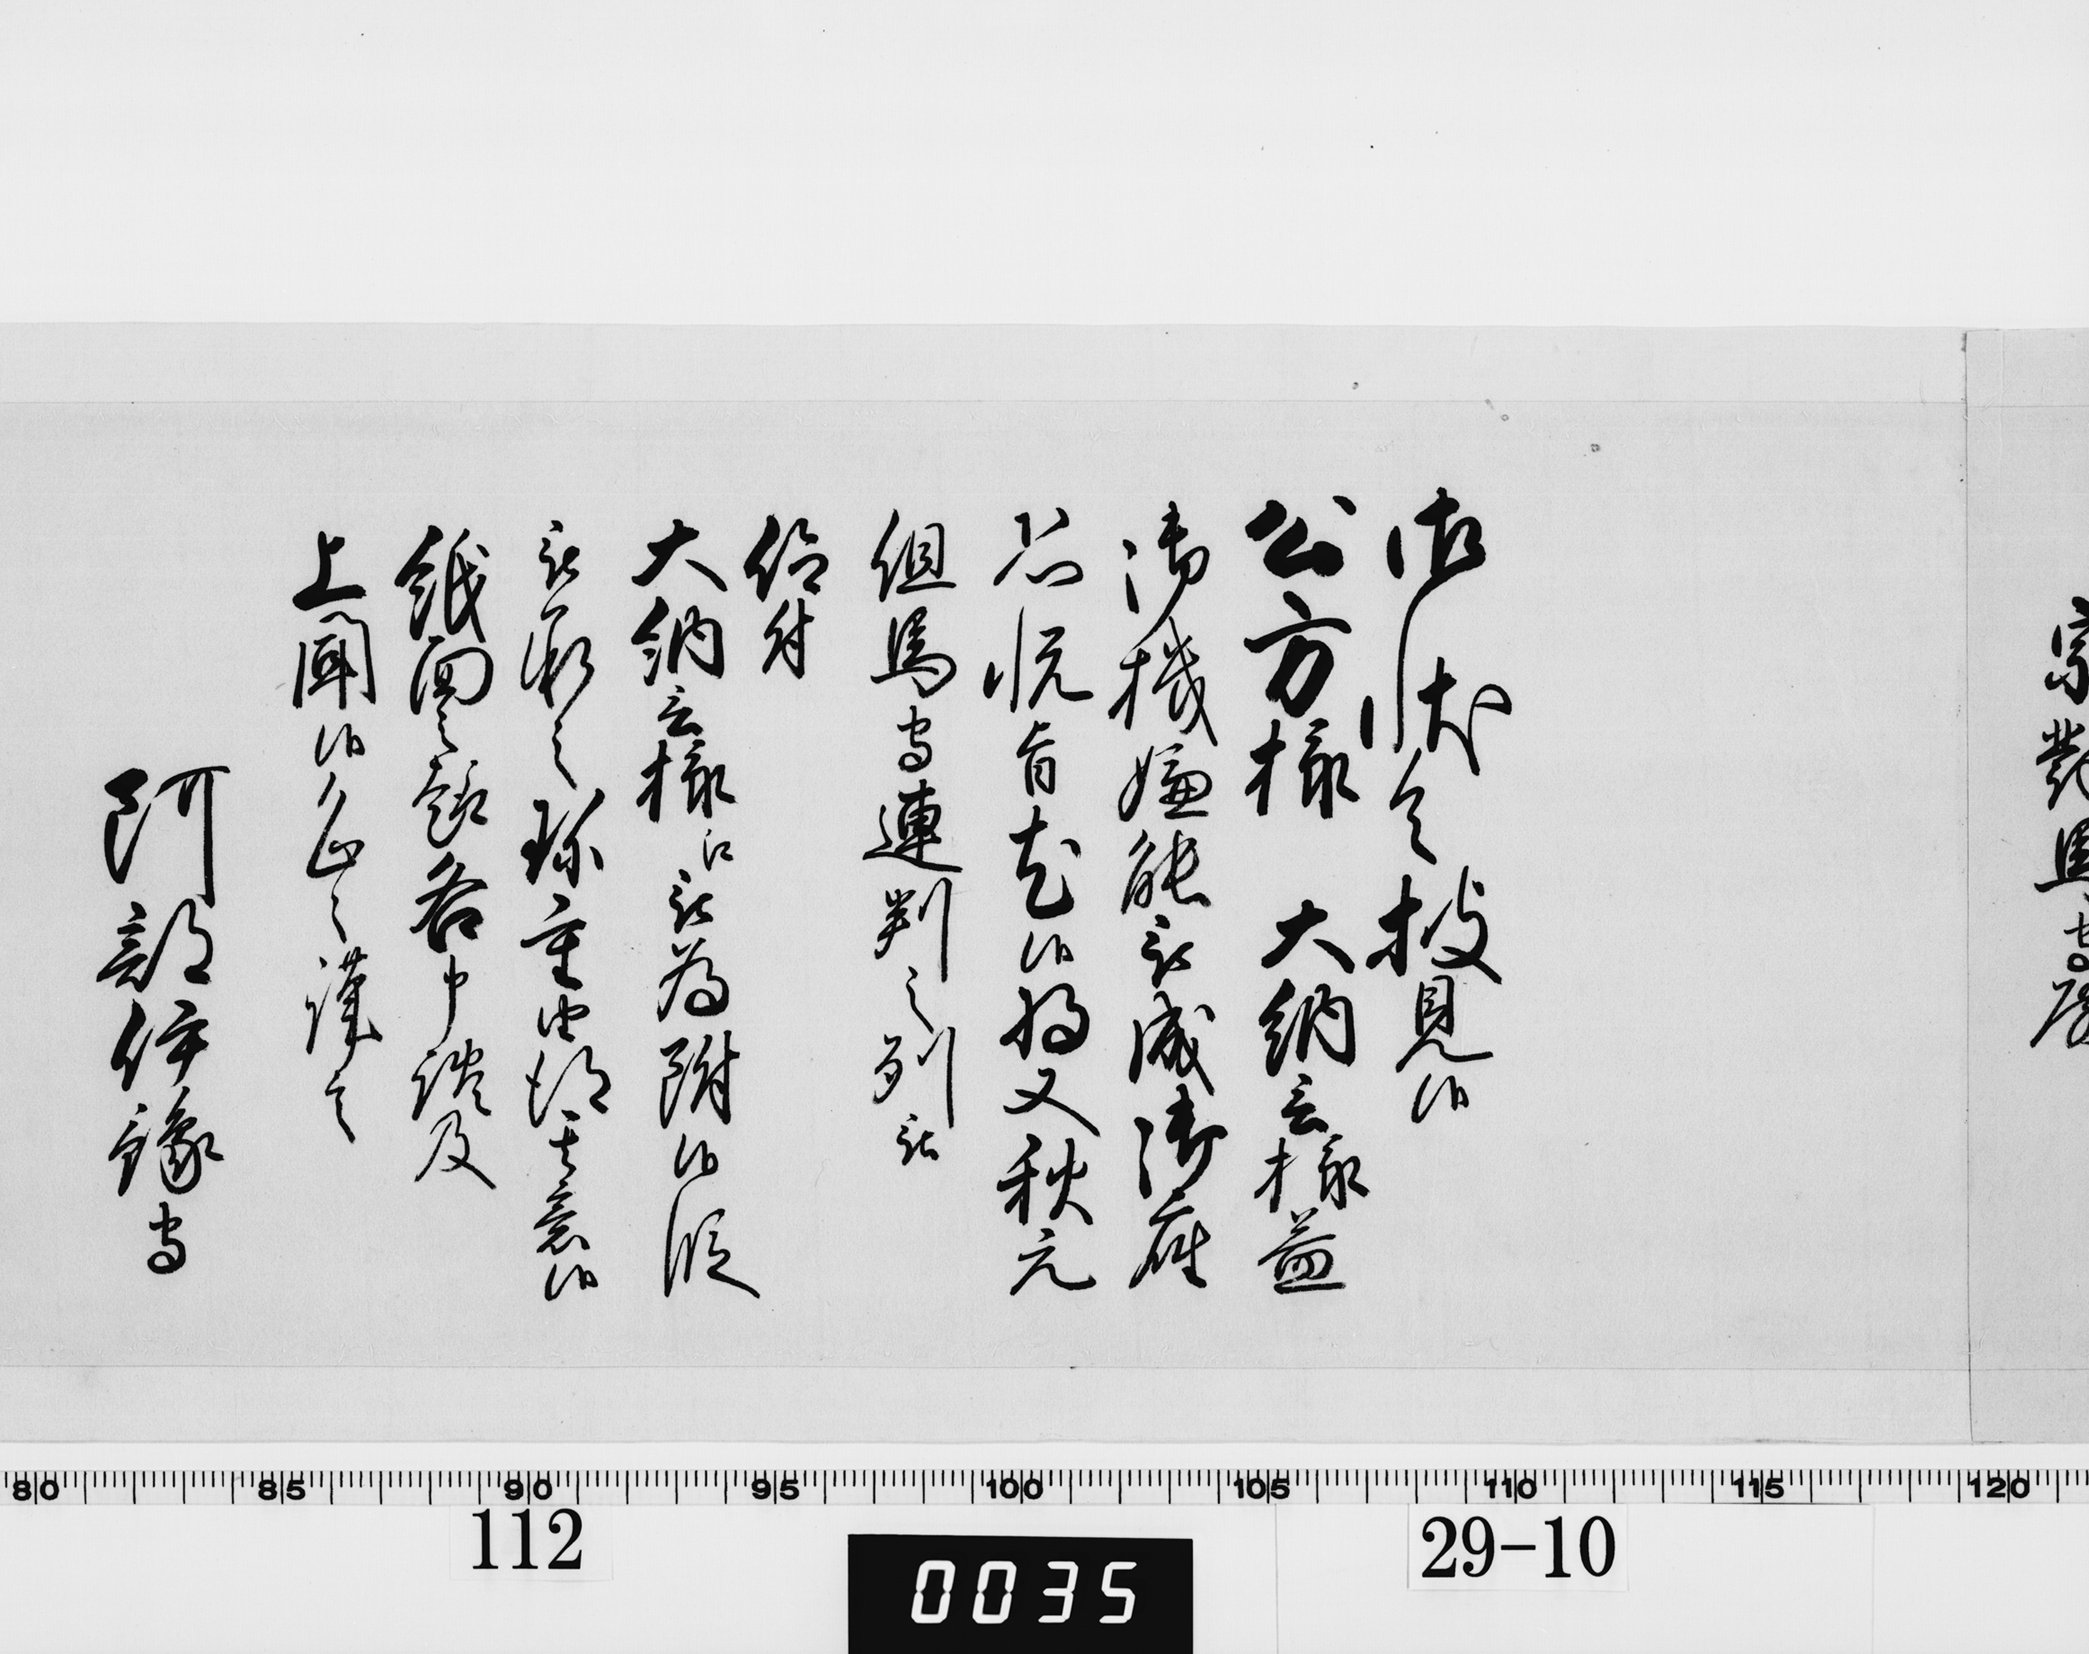 宗對馬守
御状令披見候
公方様 大納言様益
御機嫌能被成御座
恐悦旨尤候将又秋元
但馬守連判之列被
仰付
大納言様江被為附候段
被承之珍重由得其意候
紙面之趣各申談及
上聞候恐々謹言
阿部伊豫守
80 85 90 95 100 105 110 115 120
112
0035
29-10